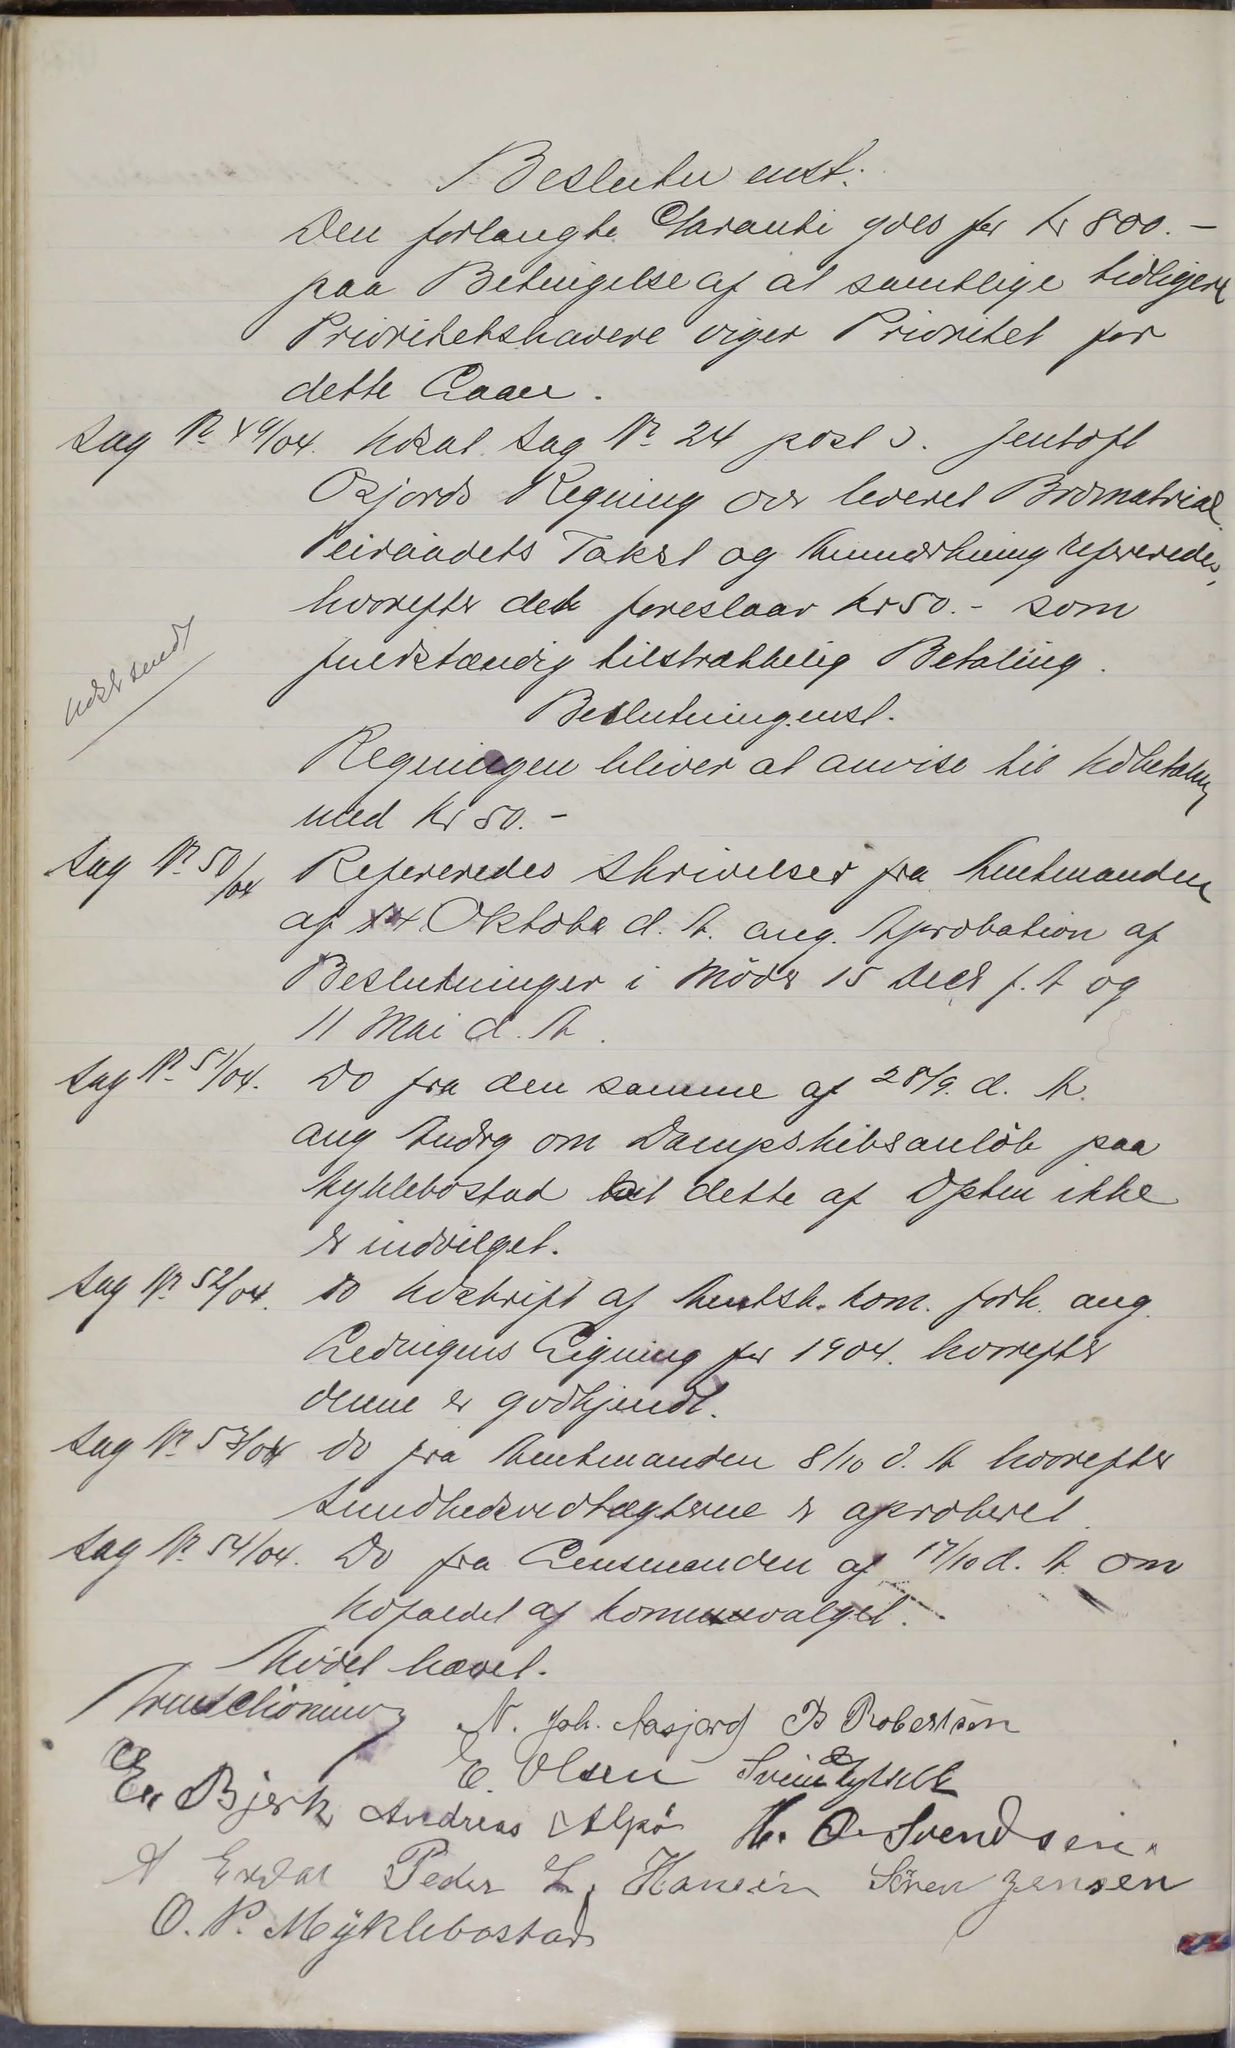 Besluttn enst:
Den forlangte Garanti gives for kr 800.-
paa Betingelse af at samtlige tidligere
Prioritetshavere viger Prioritet for
dette Laan.
Sag Nr 49/04. Udsat Sag Nr 24 post 3. Jentoft
Oxjords Regning over leveret Bromatrial
Veiraadets Takst og Anmærkning refereredes,
hvorefter det foreslaar kr 50.- som
fuldstændig tilstrækkelig Betaling.
Udskr sendt
Beslutning enst.
Regningen bliver at anvise til Udbetaling
med kr 50.-
Sag Nr 50/04 Refereredes Skrivelser fra Amtmanden
af 14 Oktober d. A. ang. Aprobation af
Beslutninger i Möder 15 Decbr f. A og
11 Mai d. A.
Sag Nr 51/04. Do fra den samme af 28/9. d. A.
ang Andrg om Dampskibsanlöb paa
Myklebostad at dette af Dpten ikke
er indvilget.
Sag Nr 52/04. Do Udskrift af Amtsk. kom. forh. ang.
Ledingens Ligning for 1904. hvorefter
denne er godkjendt.
Sag Nr 53/04 Do fra Amtmanden 8/10 d. A hvorefter
Sundhedsvedtægterne er aproberet.
Sag Nr 54/04. Do fra Lensmanden af 17/10 d. A. om
Udfaldet af Komunevalget.
Mödet hævet.
N. Joh. Aasjord Is Robertsen
E. Olsen
Er. Bjerk Andreas Alpö H. O. Svendsen.
A Exdal Peder L. Hansen Sören Jensen
O. P. Myklebostad